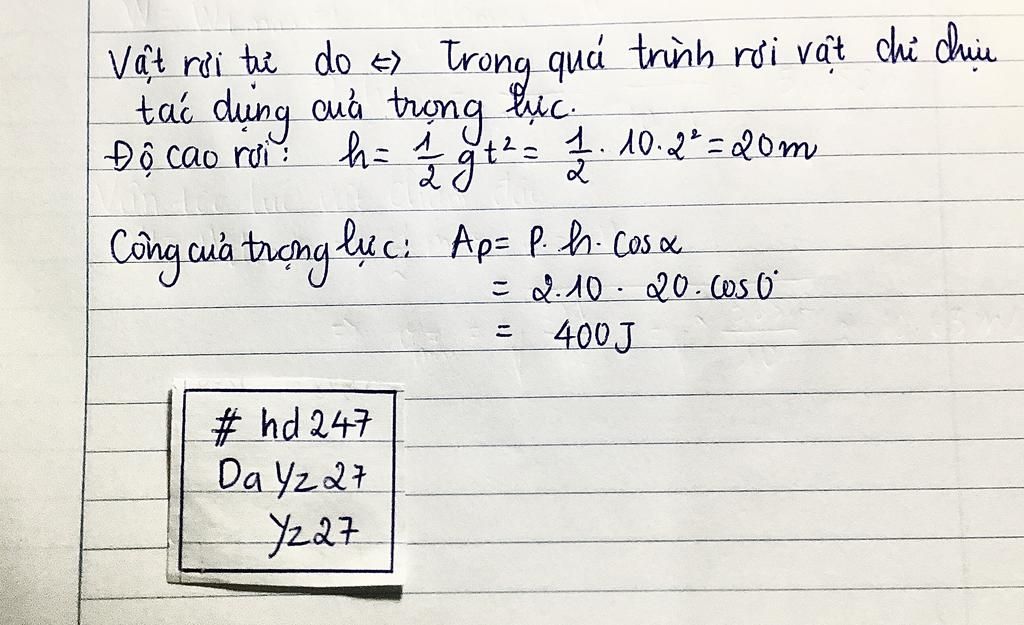 Vật rơi tự do <=> Trong quá trình rơi vật chỉ chịu
tác dụng của trọng lực.
Độ cao rơi: h = 1/2 gt² = 1/2 . 10 . 2² = 20m
Công của trọng lực: Ap = P. h. cosα
= 2.10 . 20. cos0°
= 400J
# hd 247
Da Yz 27
Yz 27